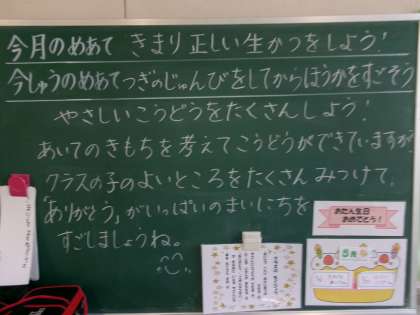 今月のめあて きまり正しい生かつをしよう!
今しゅうのめあてつぎのじゅんびをしてからほうかをすごそう
やさしいこうどうをたくさんしよう!
あいてのきもちを考えてこうどうができていますか
クラスの子のよいところをたくさんみつけて、
「ありがとう」がいっぱいのまいにちを
すごしましょうね。
おたん生日
おめでとう!
5月